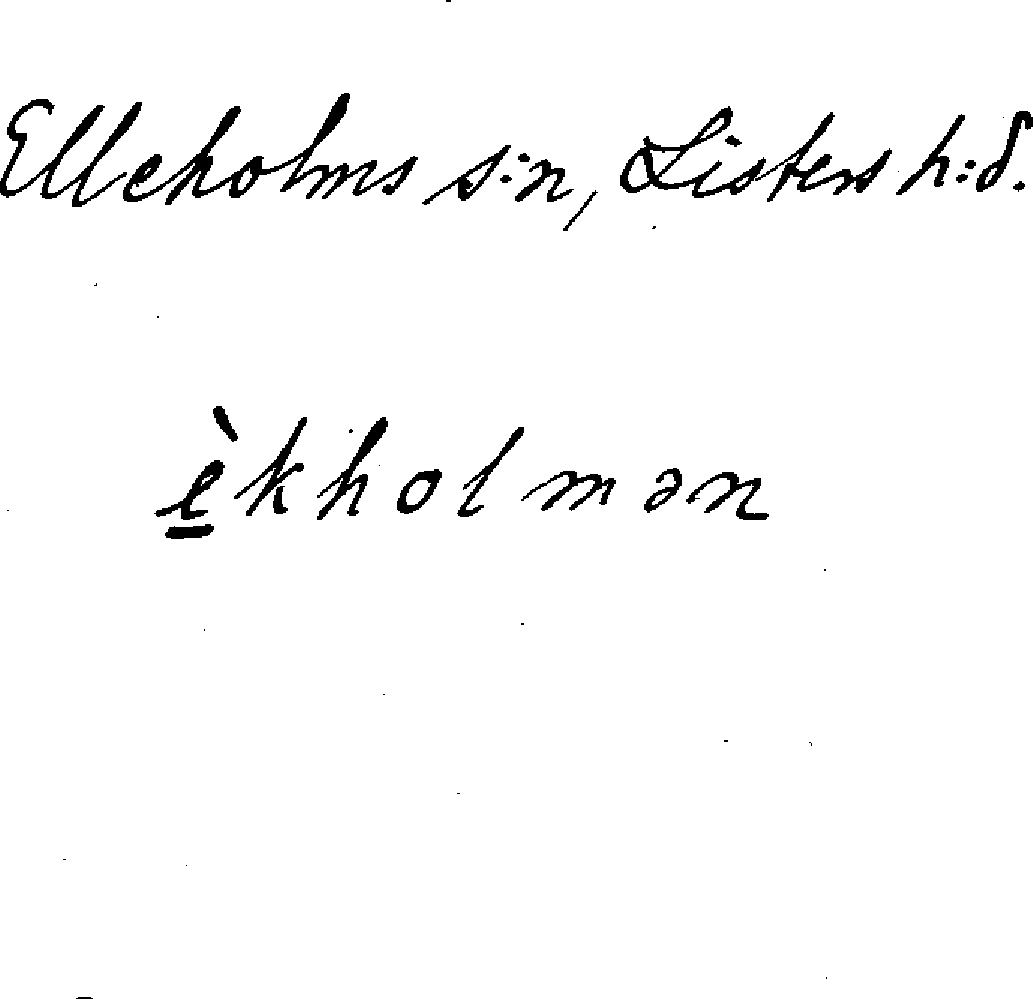 Elleholms s:n, Listers h:d.
è̱kholmən